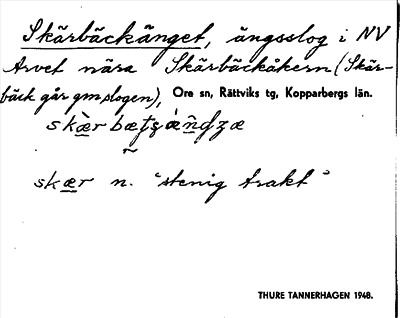 Skärbäckänget, ängsslog i NV
Arvet nära Skärbäckåkern (Skär-
bäck går gm slogen), Ore sn, Rättviks tg, Kopparbergs län.
skær n. "stenig trakt"
THURE TANNERHAGEN 1948.